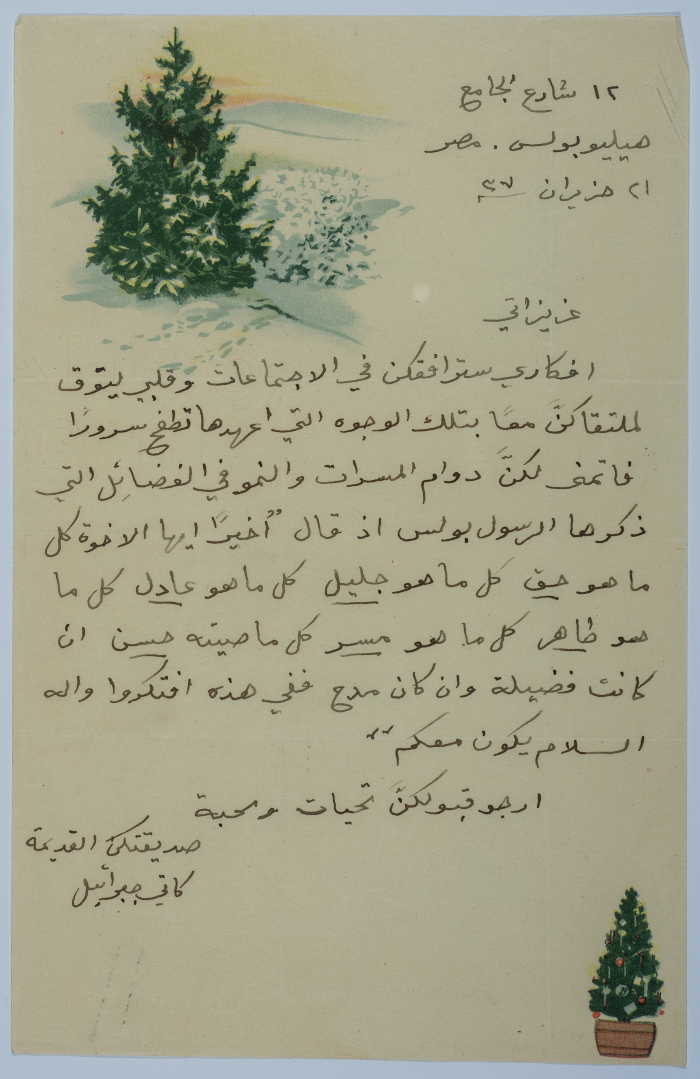 ١٢ شارع الجامع
هيليوبولس . مصر
٢١ حزيران ٣٧
عزيزاتي
افكاري سترافقكن في الاجتماعات وقلبي ليتوق
لملتقاكنَّ معًا بتلك الوجوه التي اعهدها تطفح سرورًا
فاتمنى لكنَّ دوام المسرات والنمو في الفضائل التي
ذكرها الرسول بولس اذ قال "أخيرًا ايها الاخوة كل
ما هو حق كل ما هو جليل كل ما هو عادل كل ما
هو طاهر كل ما هو مسر كل ما صيته حسن ان
كانت فضيلة وان كان مدح ففي هذه افتكروا واله
السلام يكون معكم"
ارجو قبولكنَّ تحيات ومحبة
صديقتكنَّ القديمة
كاتي جبرائيل